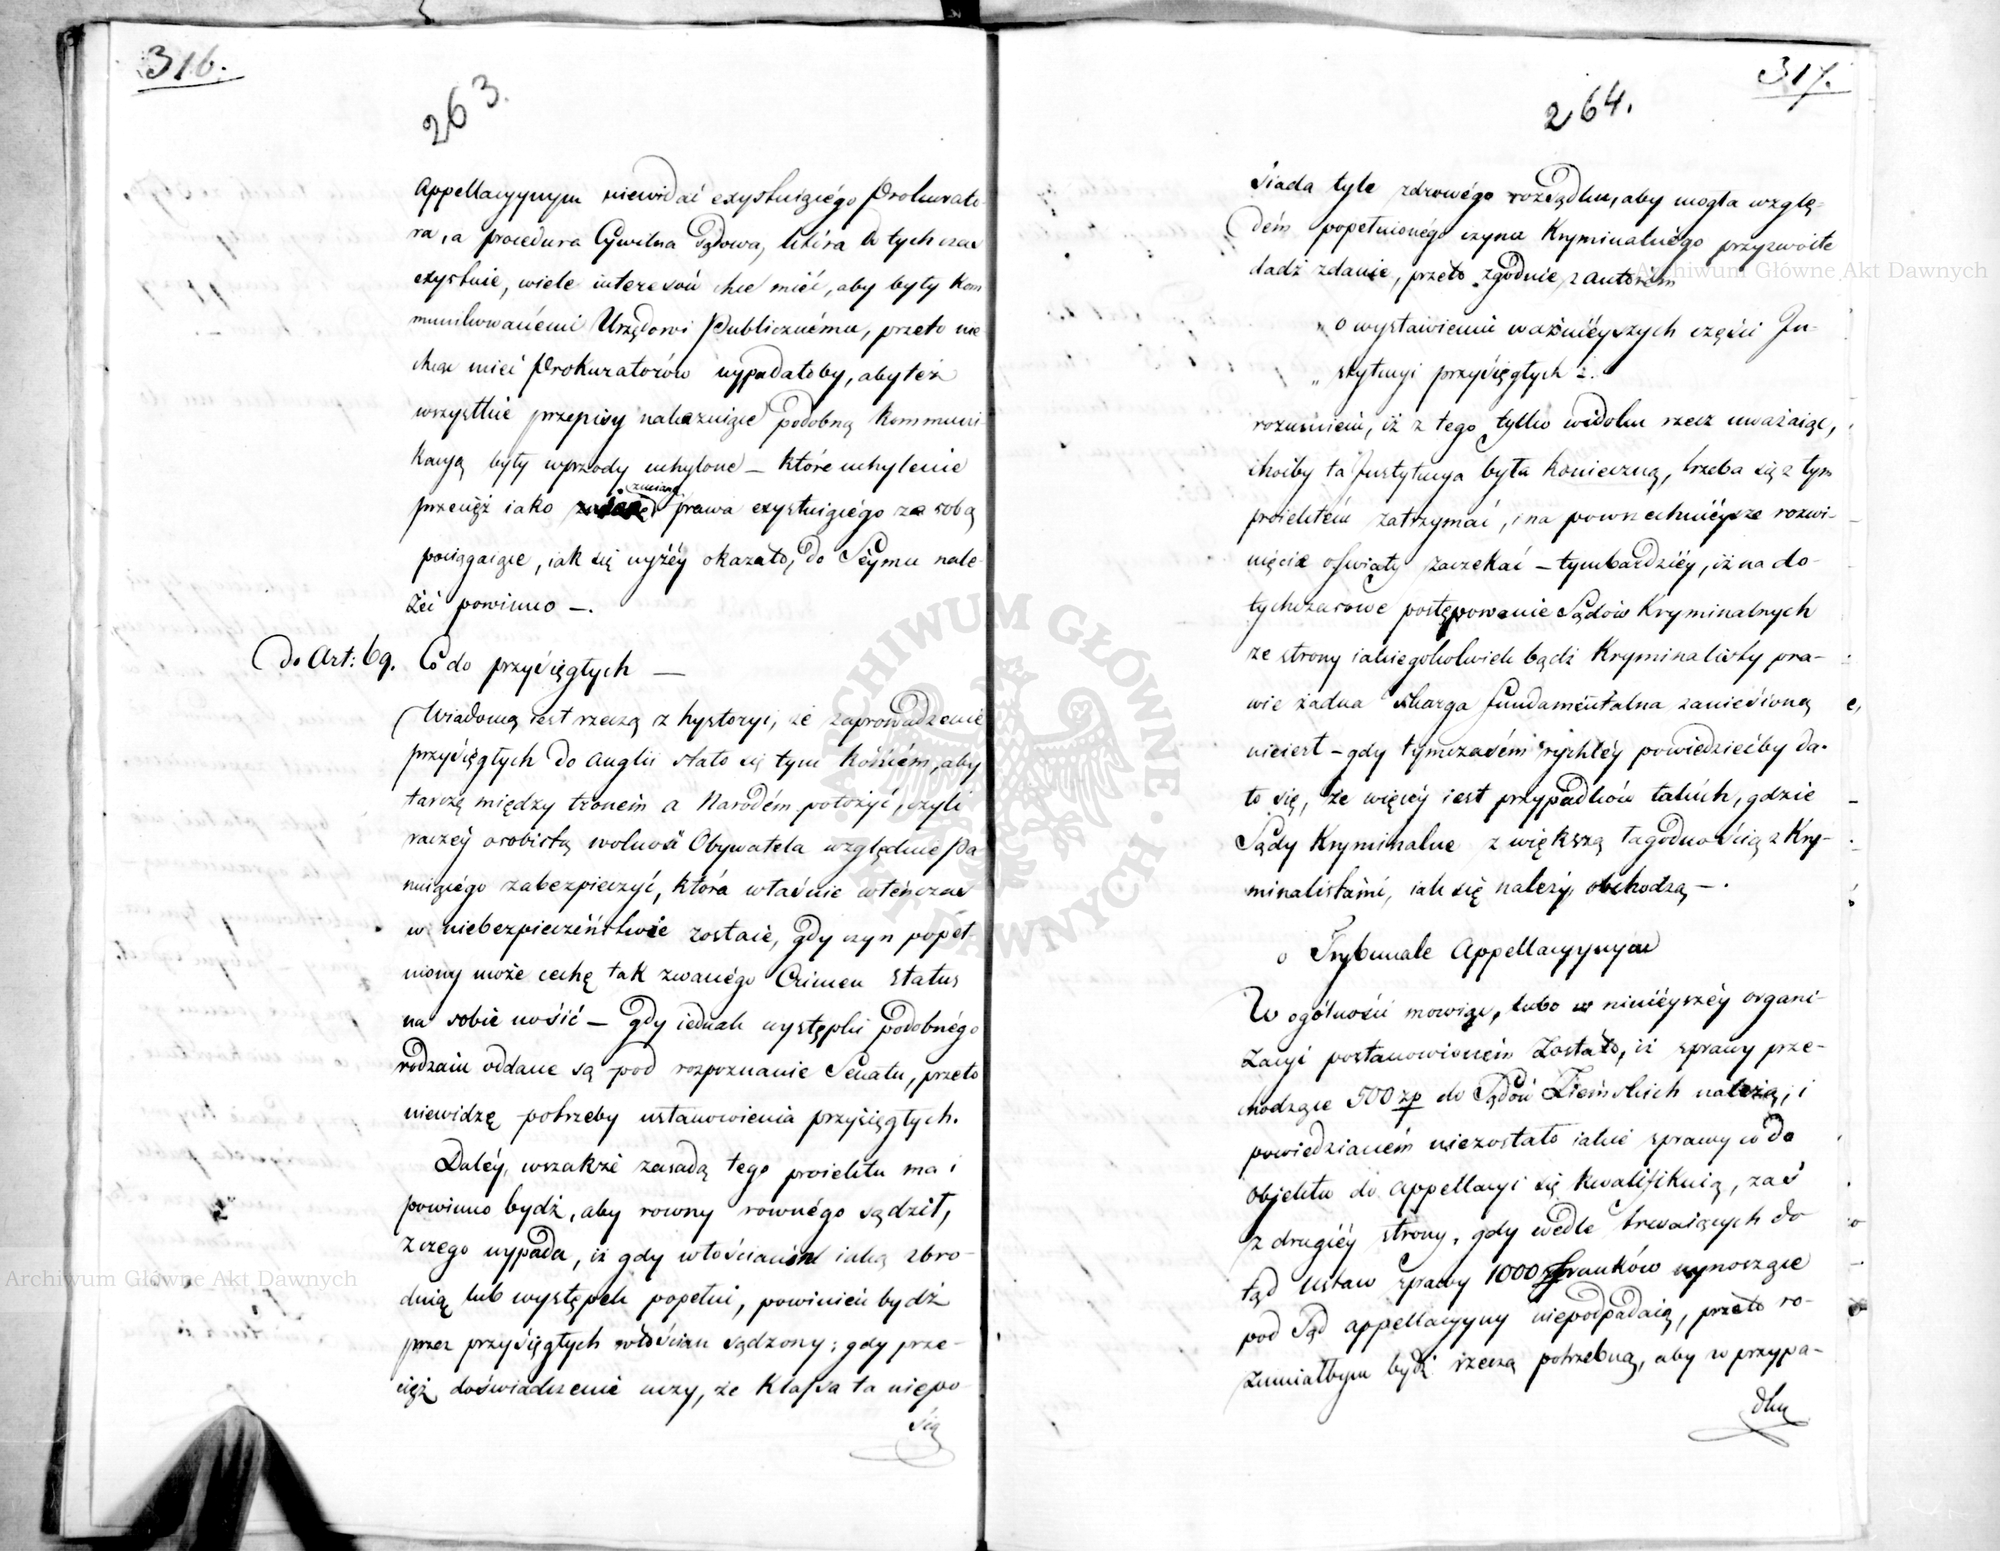 316.
263.
Appellacyynym niewidać exystuiącégo Prokurato-
ra, a procedura Cywilna Sądowa, która dotychczas
exystuie, wiele interesów chce mieć, aby były kom
munikowanémi Urzędowi Publicznému, przeto nie
chcąc mieć Prokuratorów wypadałoby, aby też
wszystkie przepisy nakazuiące podobną Kommuni-
kacyą były wprzódy uchylone — które uchylenie
zmianę
przecięż iako prawa exystuiącégo za sobą
pociągaiące, iak się wyżéy okazało, do Séymu nale-
żéć powinno —.
Do Art: 69. Co do przysięgłych —
Wiadomą iest rzeczą z hystoryi, że zaprowadzenie
przysięgłych do Anglii stało się tym końcém, aby
tarczę między tronem a Narodém położyć, czyli
raczéy osobistą wolność Obywatela względnie Pa
nuiącégo zabezpieczyć, która właśnie wténczas
w niebezpieczéństwie zostaie, gdy czyn popeł-
niony może cechę tak zwanégo Crimen status
na sobie nosić — gdy iednak występki podobnégo
rodzaiu oddane są pod rozpoznanie Senatu, przeto
niewidzę potrzeby ustanowienia przysięgłych.
Daléy, wszakże zasadą tego proiektu ma i
powinno bydź, aby rowny rownégo sądził,
z czego wypada, iż gdy włościanin iaką zbro-
dnią lub występek popełni, powinien bydź
przez przysięgłych włościan sądzony; gdy prze-
cięż doświadczenie uczy, że Klassa ta niepo-
sia
317.
264.
siada tyle zdrowégo rozsądku, aby mogła wzglę-
dém popełnionégo czynu Kryminalnégo przyzwoite
dadź zdanie, przeto zgodnie z autorém
„ o wystawieniu ważniéyszych części In-
„ stytucyi przysięgłych :.
rozumiem, iż z tego tylko widoku rzecz uważaiąc,
choćby ta Instytucya była konieczną, trzeba się z tym
proiektém zatrzymać, i na powszechniéysze rozwi-
nięcie oświaty zaczekać — tymbardziéy, iż na do-
tychczasowe postępowanie Sądów Kryminalnych
ze strony iakiegokolwiek bądź Kryminalisty pra-
wie żadna skarga fundamentalna zaniesioną
nieiest — gdy tymczasém rychléy powiedziećby da-
ło się, że więcéy iest przypadków takich, gdzie
Sądy Kryminalne z większą łagodnością z Kry-
minalistami, iak się należy, obchodzą —.
o Trybunale Appellacyynym
W ogólności mowiąc, lubo w niniéyszéy organi-
zacyi postanowioném zostało, iż sprawy prze-
chodzące 500 zp do Sądów Ziemskich należą, i
powiedzianém niezostało iakie sprawy co do
objektu do appellacyi się kwalifikuią, zaś
z drugiéy strony, gdy wedle trwaiących do
tąd ustaw sprawy 1000 franków wynoszące
pod Sąd appellacyyny niepodpadaią, przeto ro-
zumiałbym bydź rzeczą potrzebną, aby w przypa-
dku
Archiwum Główne Akt Dawnych
Archiwum Główne Akt Dawnych
ARCHIWUM GŁÓWNE AKT DAWNYCH